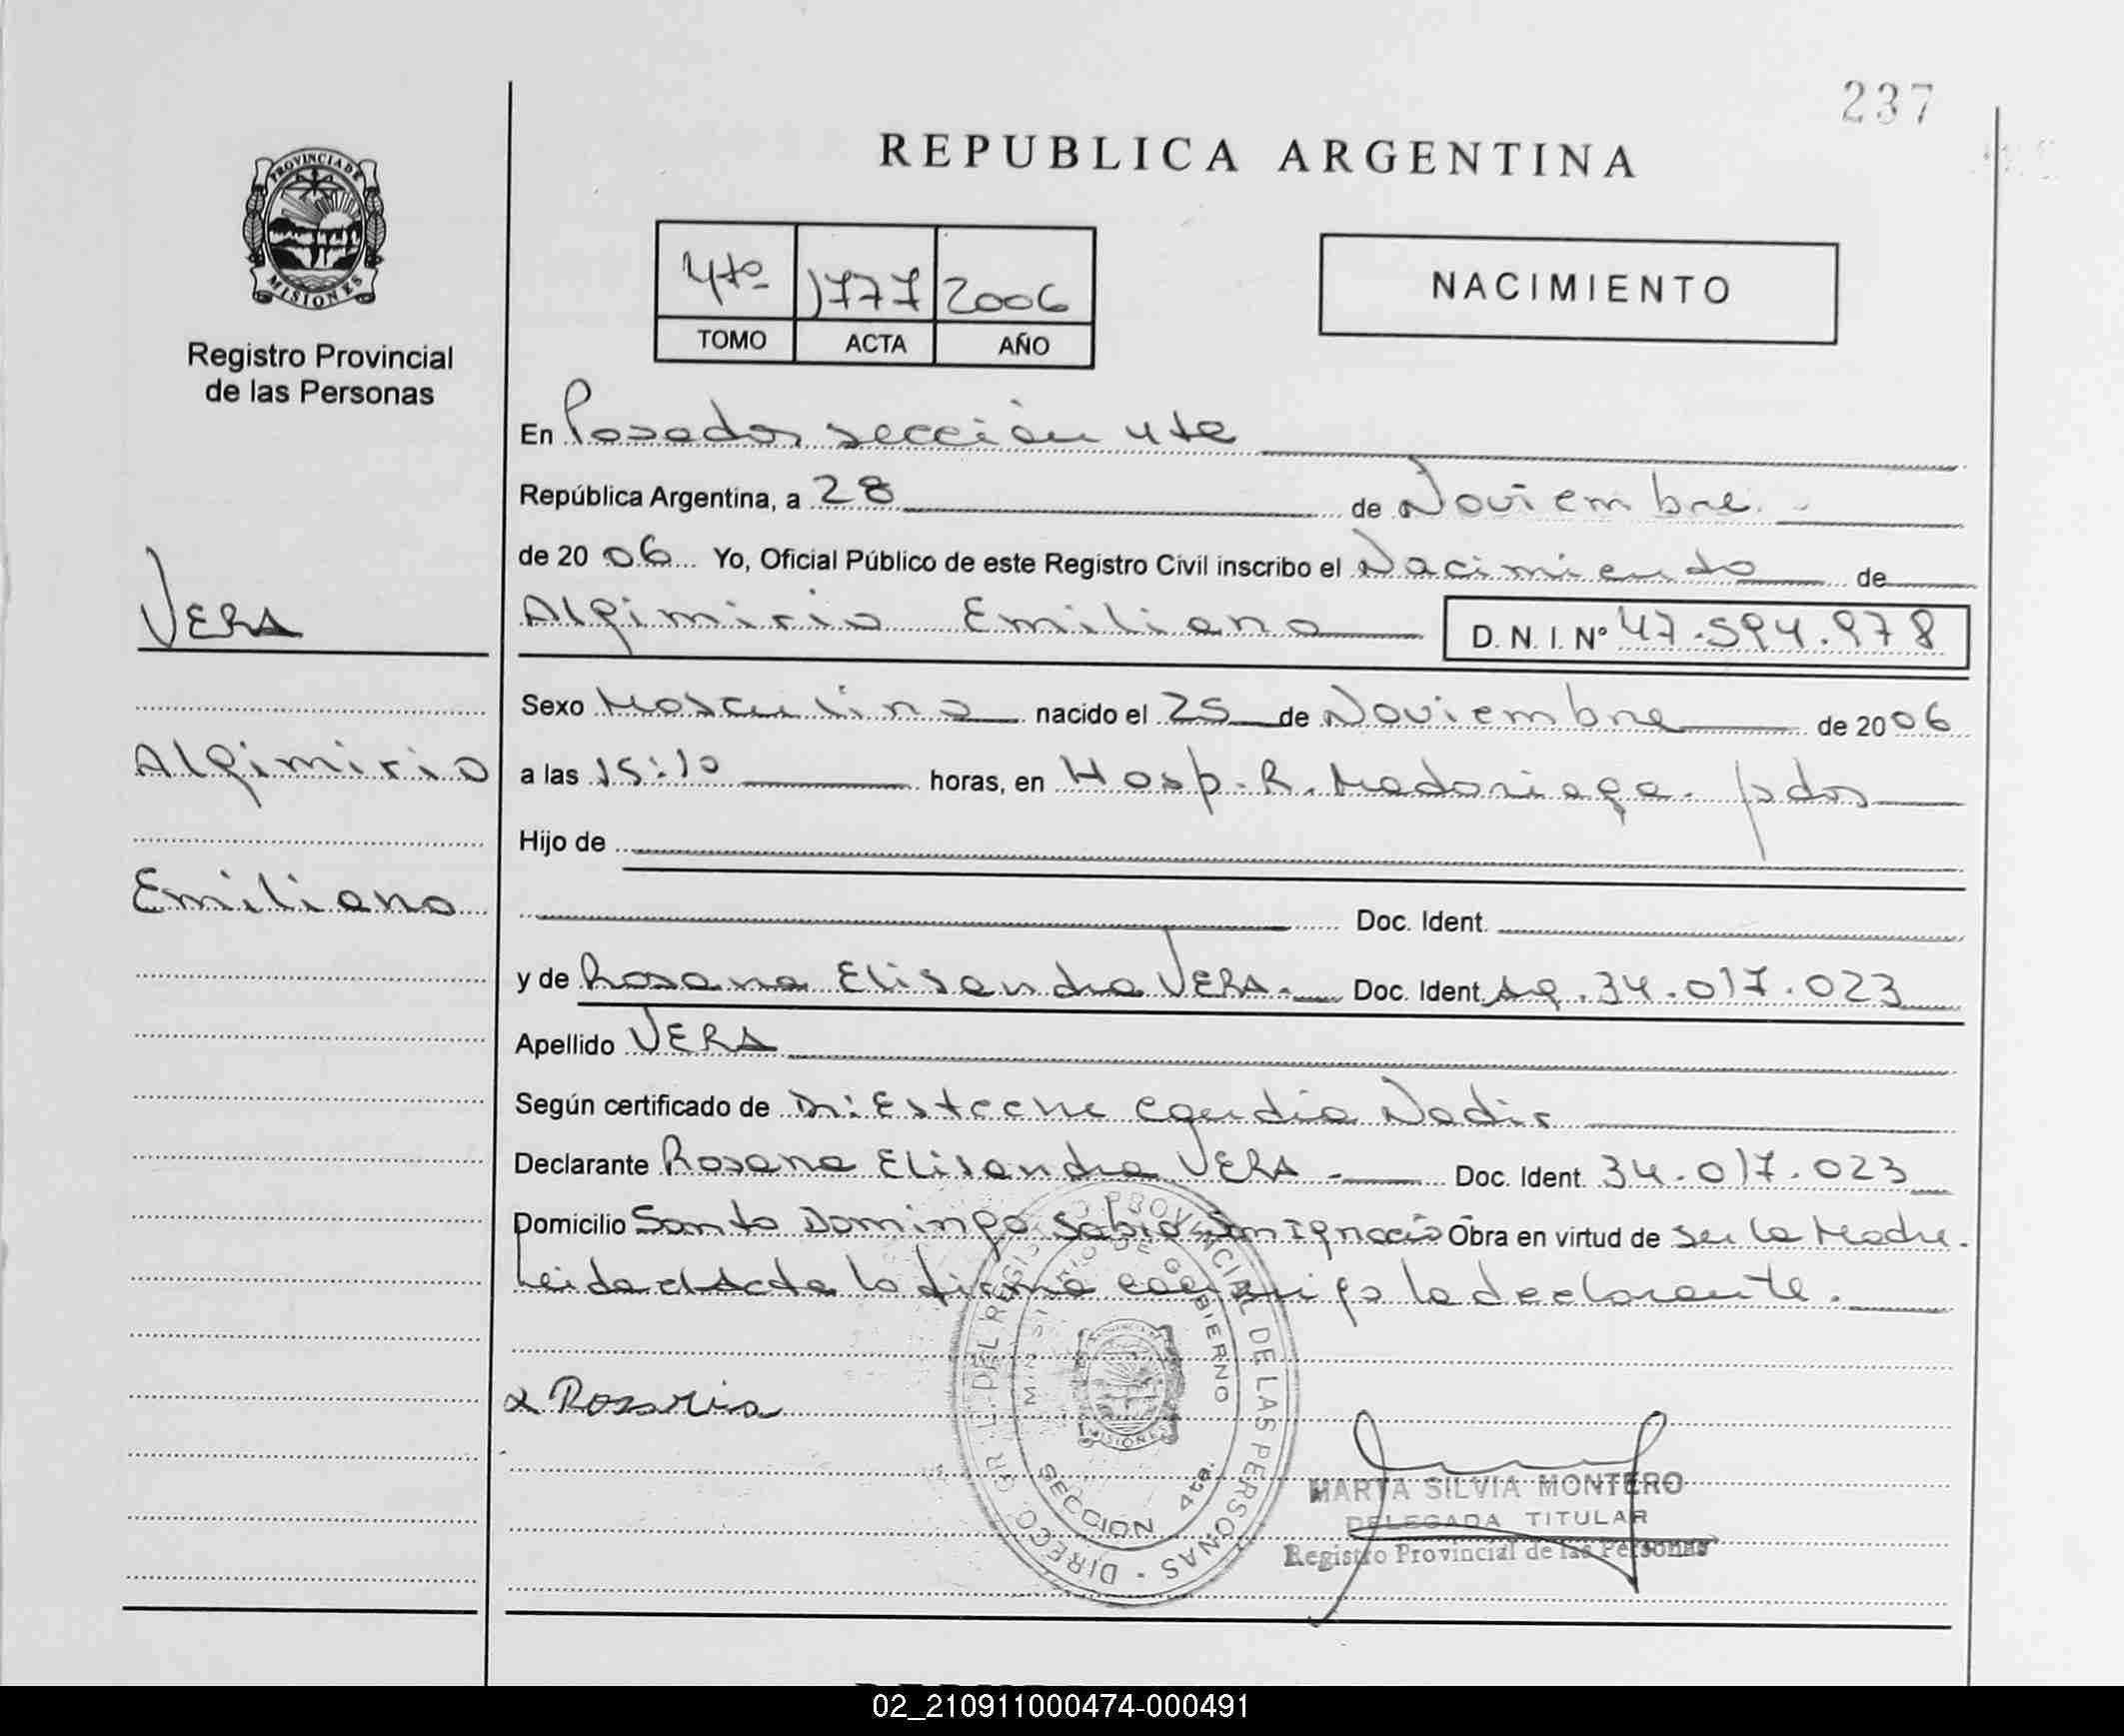 237
REPUBLICA ARGENTINA
PROVINCIA DE
MISIONES
Registro Provincial
de las Personas
4to 1777 2006
TOMO ACTA AÑO
NACIMIENTO
En Posadas sección 4ta
República Argentina, a 28 de Noviembre
de 2006 Yo, Oficial Público de este Registro Civil inscribo el Nacimiento de
VERA
Algimirio Emiliano D. N. I. Nº 47.594.978
Sexo Masculino nacido el 25 de Noviembre de 2006
Algimirio
a las 15:10 horas, en Hosp. R. Madariaga. pdas
Hijo de
Emiliano
Doc. Ident.
y de Rosana Elisandra VERA. Doc. Ident. Ag. 34.017.023
Apellido VERA
Según certificado de Dr: Esteche Nadir
Declarante Rosana Elisandra VERA Doc. Ident. 34.017.023
Domicilio Santo Domingo Sabio San Ignacio Obra en virtud de ser la Madre.
Leida el Acta la firma conmigo la declarante.
DEL REGISTRO PROVINCIAL DE LAS PERSONAS
MINISTERIO DE GOBIERNO
MISIONES
SECCION 4ta.
MARTA SILVIA MONTERO
DELEGADA TITULAR
Registro Provincial de las Personas
02_210911000474-000491